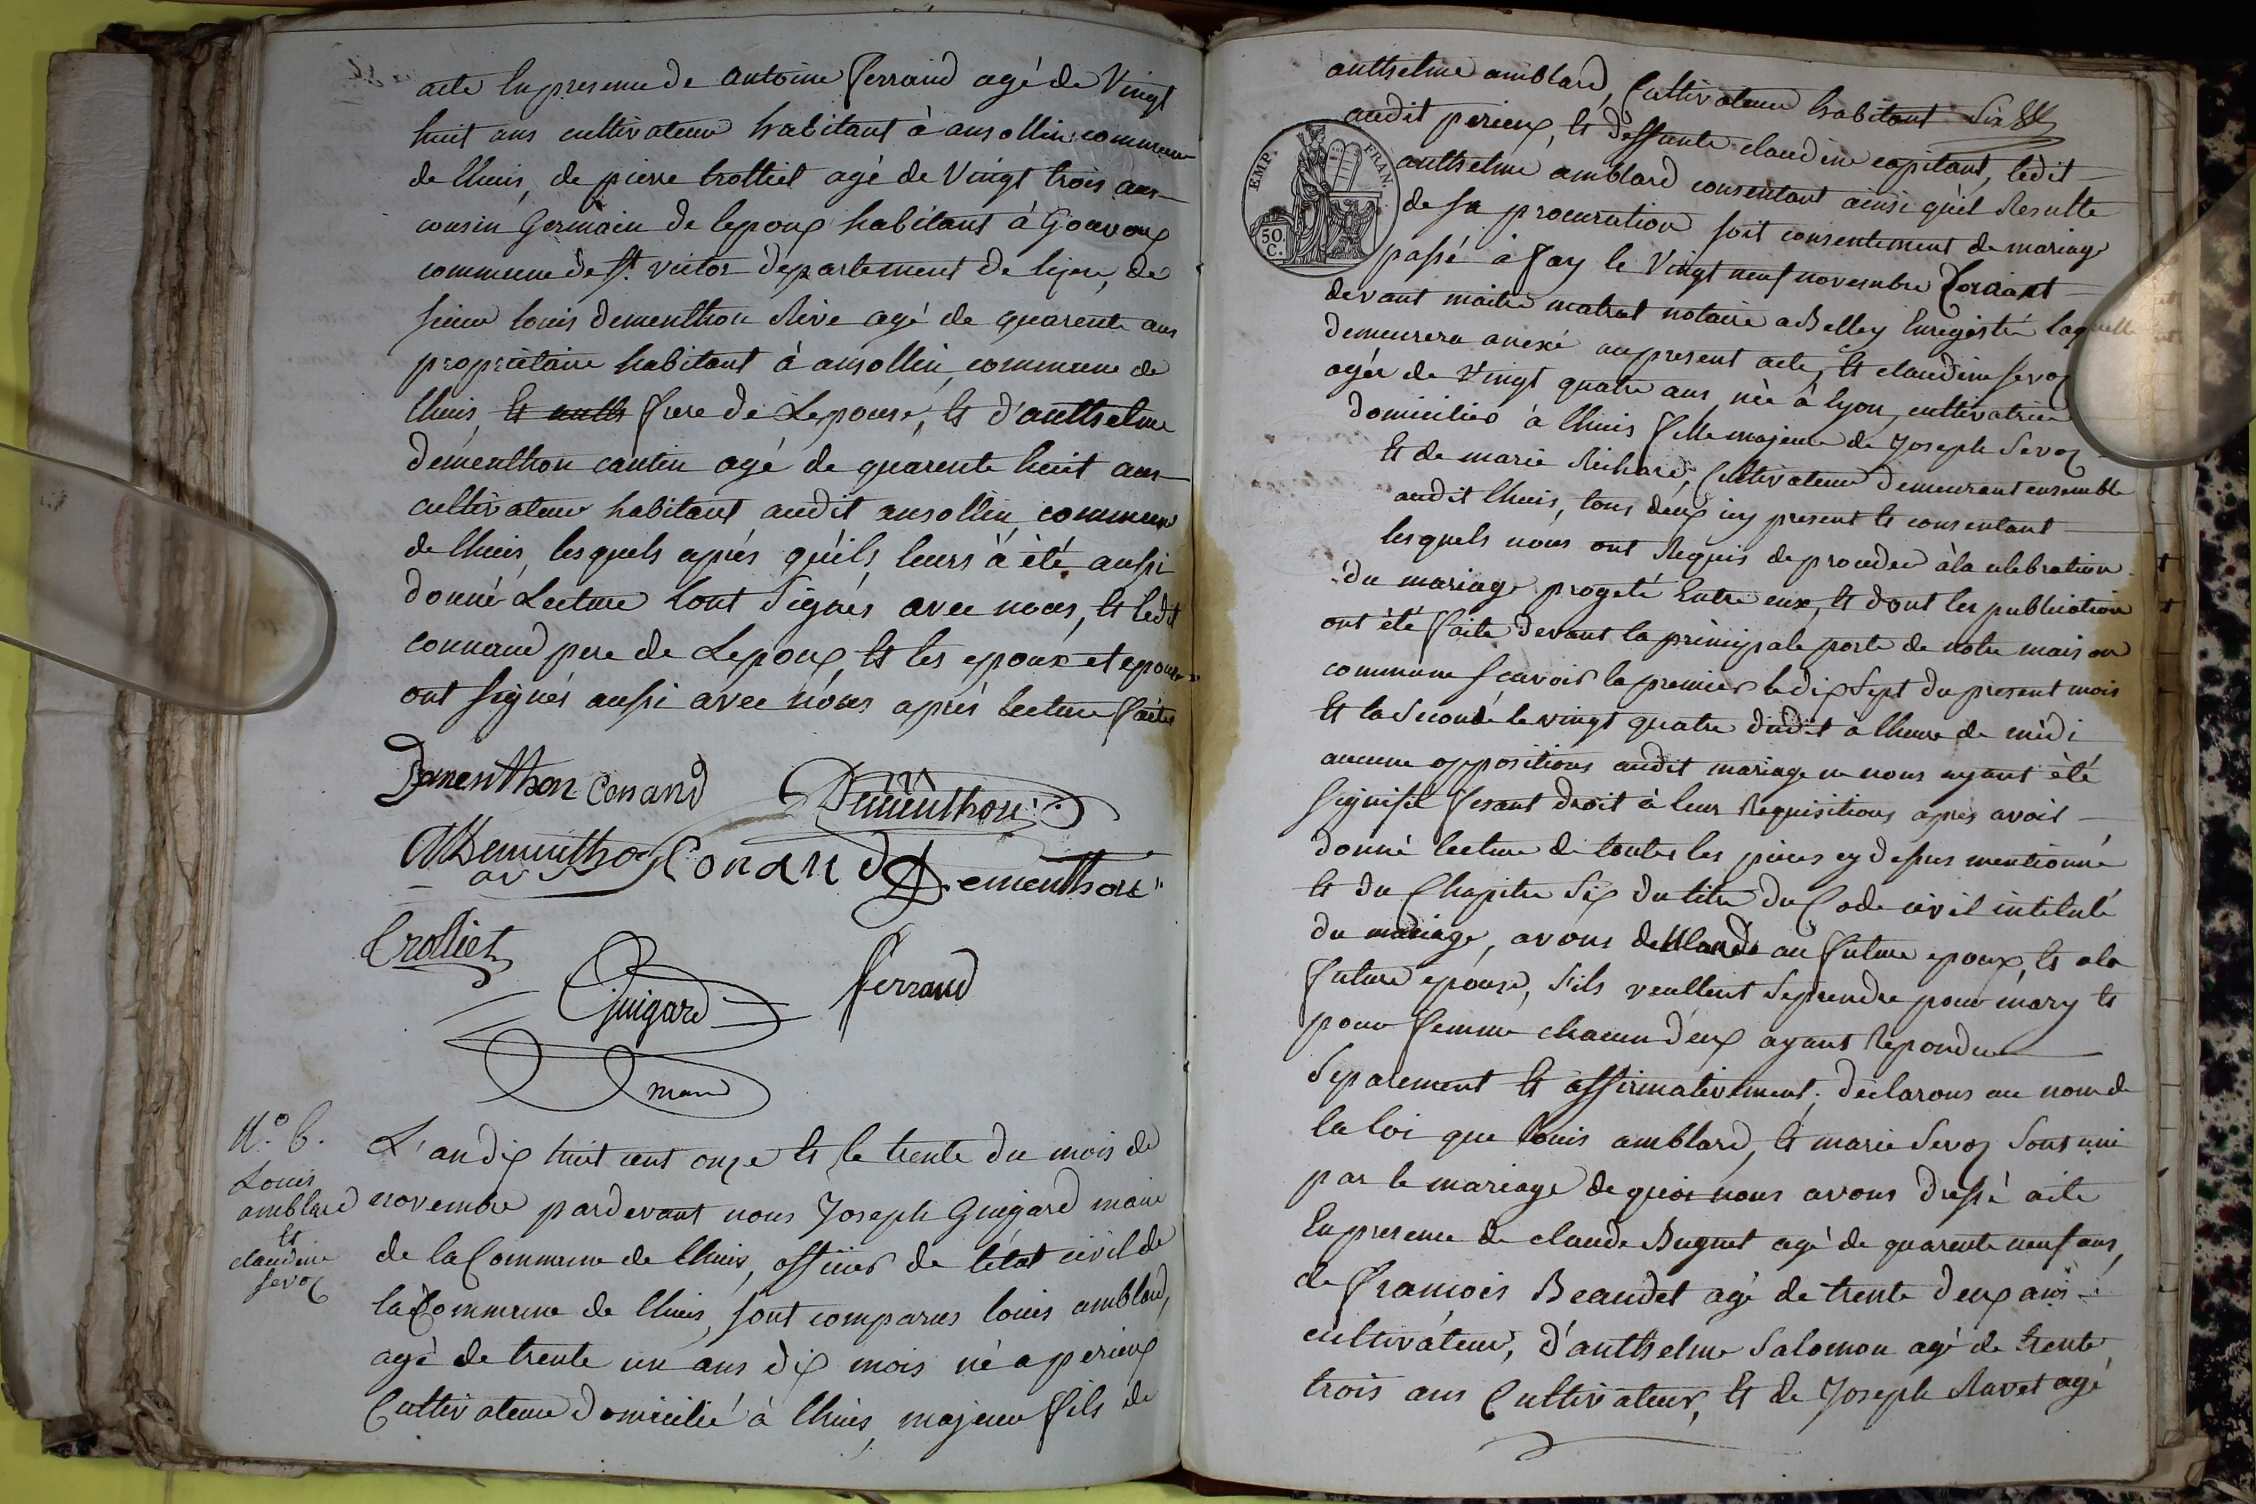 acte en presence de antoine ferrand agé de Vingt
huit ans cultivateur habitant à ansollin commune
de lhuis, de pierre trolliet agé de Vingt trois ans
cousin Germain de lepoux habitant à Gouvoux
commune de St. victor departement de lisere, de
sieur louis dementhon Rive agé de quarente ans
propriétaire habitant à ansollin, commune de
lhuis, et anth frere de Lepouse, et d'anthelme
dementhon cantin agé de quarente huit ans
cultivateur habitant audit ansollin commune
de lhuis, lesquels aprés qu'ils leurs à èté aussi
donné Lecture sont Signés avec nous, et ledit
connand pere de Lepoux et les epoux et epouse
ont signés aussi avec nous aprés lecture faite
Dementhon Conand Dementhon
Dementhon Conand Dementhon
Crolliet
Guigard ferrand
maire
N.o 6.
Louis
amblard
et
claudine
Sevoz
L'an dix huit cent onze et le trente du mois de
novembre pardevant nous Joseph Guigard maire
de la Commune de lhuis, officier de l'état civil de
la Commune de lhuis, sont comparus louis amblard,
agé de trente un ans dix mois né a perieux
Cultivateur domicilié à lhuis, majeur fils de
Six
anthelme amblard, Cultivateur habitant
audit perieux, et deffunte claudine capitant, ledit
anthelme amblard consentant ainsi qu'il Resulte
de sa procuration soit consentement de mariage
passé à fay le Vingt neuf novembre Courant
devant maitre matral notaire a Belley Enregistré laquelle
demeurera anexé au present acte, et claudine Sevoz
agée de Vingt quatre ans née à lyon, cultivatrice
domiciliée à lhuis fille majeure de Joseph Sevoz
et de marie Richard, Cultivateur demeurant ensemble
audit lhuis, tous deux icy present et consentant
lesquels nous ont Requis de proceder à la celebration
du mariage progeté Entre eux, et dont les publication
ont èté faite devant la principale porte de notre maison
commune scavoir la premier le dix Sept du present mois
et la Seconde le vingt quatre dudit a lheure de midi
aucune oppositions audit mariage ne nous ayant èté
signifié fesant droit à leur Requisitions aprés avoir
donné lecture de toutes les pieces cy dessus mentionné
et du Chapitre Six du titre du Code civil intitulé
du mariage, avons demandé au future epoux, et a la
future epouse, s'ils veullent Seprendre pour mary et
pour femme chacun d'eux ayant Repondu
Separement et affirmativement, declarons au nom de
la loi que louis amblard, et marie Sevoz Sont uni
par le mariage de quoi nous avons dressé acte
En presence de claude Buguet agé de quarente neuf ans,
de francois Beaudet agé de trente deux ans
cultivateur, d'anthelme Salomon agé de trente
trois ans Cultivateur, et de Joseph Ravet agé
EMP. FRAN.
50
C.